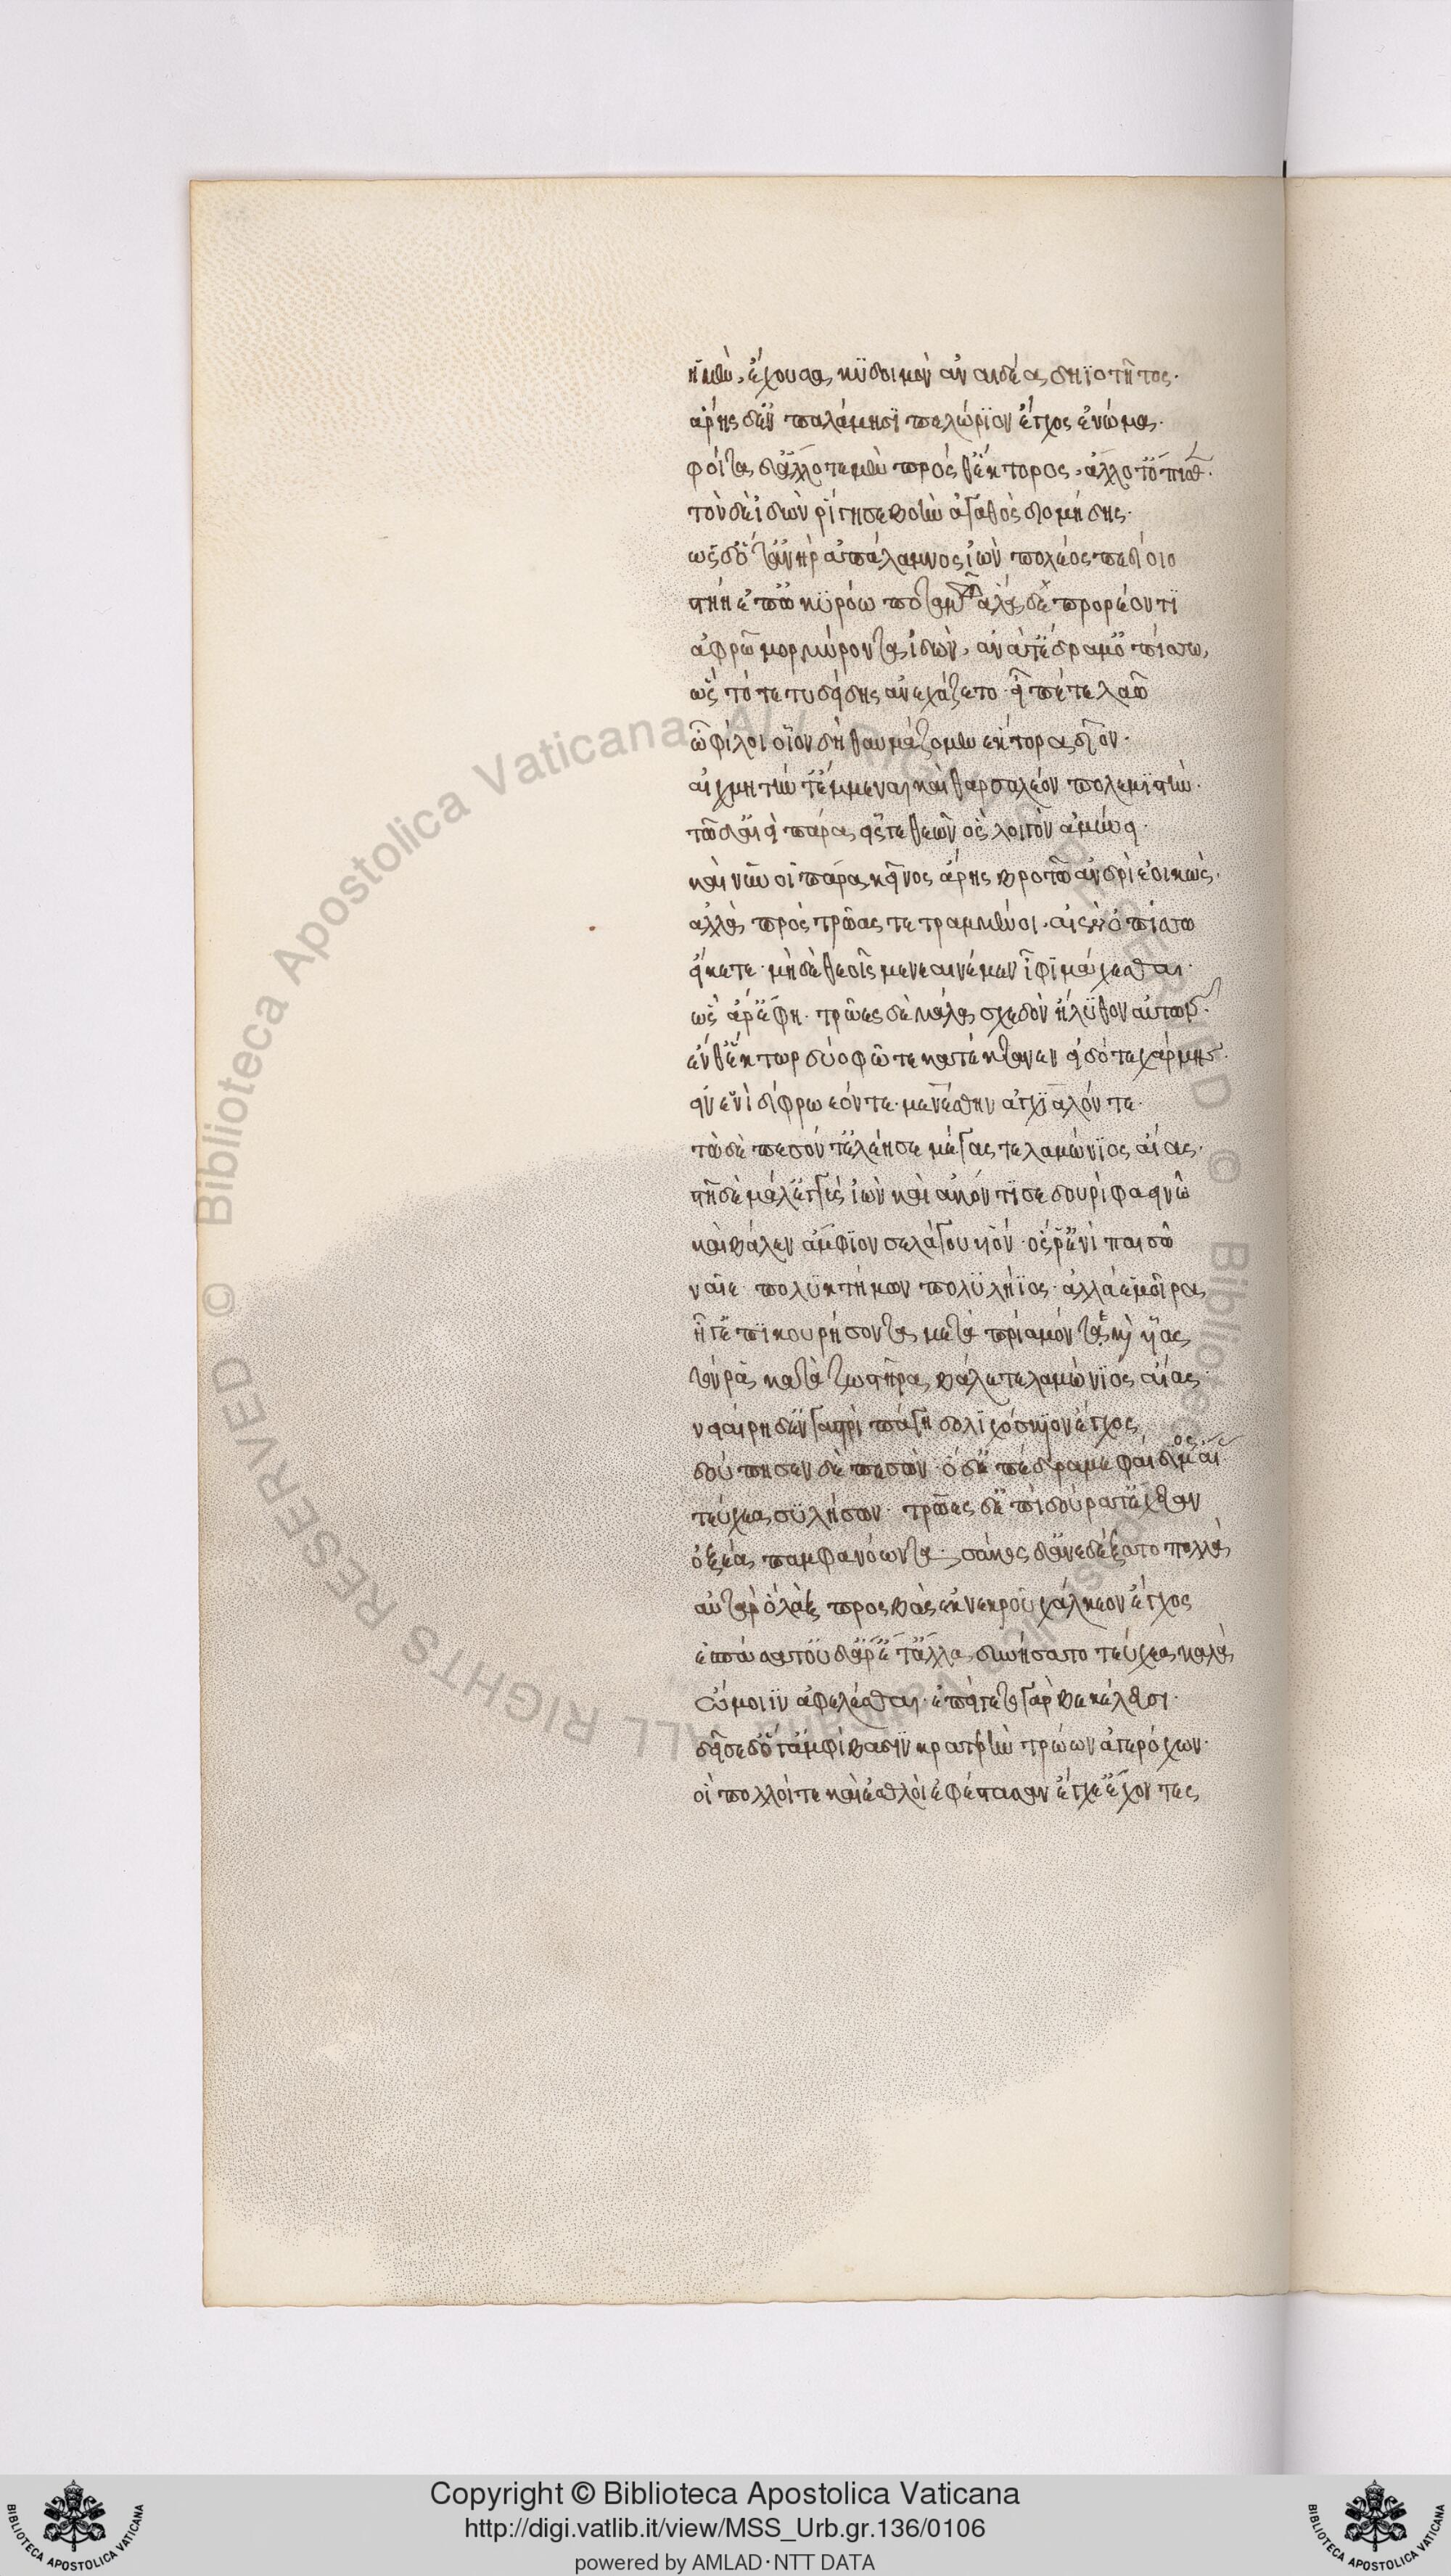 ἡ μὲν ἔχουσα κυδοιμὸν ἀναιδέα δηϊοτῆτος·
ἄρης δ' ἐν παλάμησι πελώριον ἔγχος ἐνώμα·
φοίτα δ' ἄλλοτε μὲν πρόσθ' ἕκτορος, ἄλλοτ' ὄπισθε·
τὸν δὲ ἰδὼν ῥίγησε βοὴν ἀγαθὸς διομήδης·
ὡς δ' ὅτ' ἀνὴρ ἀπάλαμνος ἰὼν πολέος πεδίοιο
στήη ἐπ' ὠκυρόω ποταμῶ ἅλα δὲ προρέοντι
ἀφρῶ μορμύροντα ἰδών, ἀνά τ' ἔδραμ' ὀπίσσω,
ὣς τότε τυδείδης ἀνεχάζετο· εἶπέ τε λαῶ
ὦ φίλοι οἷον δὴ θαυμάζομεν ἕκτορα δῖον·
αἰχμητήν τ' ἔμμεναι καὶ θαρσαλέον πολεμιστήν·
τῶ δ' αἰεὶ πάρα εἷς γε θεῶν ὃς λοιγὸν ἀμύνει·
καὶ νῦν οἱ πάρα κεῖνος ἄρης βροτῶ ἀνδρὶ ἐοικώς·
ἀλλὰ πρὸς τρῶας τετραμμένοι· αἰὲν ὀπίσσω
εἴκετε· μὴ δὲ θεοῖς μενεαινέμεν ἶφι μάχεσθαι·
ὣς ἄρ' ἔφη· τρῶες δὲ μάλα σχεδὸν ἤλυθον αὐτῶν·
ἔνθ' ἕκτωρ δύο φῶτε κατέκτανεν εἰδότε χάρμης·
εἰν ἑνὶ δίφρω ἐόντε· μενέσθην ἀγχίαλόν τε·
τὼ δὲ πεσόντ' ἐλέησε μέγας τελαμώνιος αἴας·
στῆ δὲ μάλ' ἐγγὺς ἰὼν καὶ ἀκόντισε δουρὶ φαεινῶ
καὶ βάλεν ἄμφιον σελάγου υἱόν· ὅς ῥ' ἐνὶ παισῶ
ναῖε πολυκτήμων πολυλήϊος· ἀλλά ἑ μοῖρα
ἦγ' ἐπικουρήσοντα μετὰ πρίαμόν τε καὶ υἷας
τόν ῥα κατὰ ζωστῆρα βάλε τελαμώνιος αἴας
νειαίρη δ' ἐν γαστρὶ πάγη δολιχόσκιον ἔγχος
δούπησεν δὲ πεσών· ὁ δ' ἐπέδραμε φαίδιμος αἴας
τεύχεα συλήσων· τρῶες δ' ἐπὶ δούρατ' ἔχευαν
ὀξέα παμφανόωντα· σάκος δ' ἀνεδέξατο πολλὰ
αὐτὰρ ὁ λὰξ προσβὰς ἐκ νεκροῦ χάλκεον ἔγχος
ἐσπάσατ' οὐδ' ἄρ' ἔτ' ἄλλα δυνήσατο τεύχεα καλὰ
ὤμοιϊν ἀφελέσθαι· ἐπείγετο γὰρ βελέεσσι·
δεῖσε δ' ὅγ' ἀμφίβασιν κρατερὴν τρώων ἀγερώχων·
οἳ πολλοί τε καὶ ἐσθλοὶ ἐφέστασαν ἔγχε' ἔχοντες
Copyright © Biblioteca Apostolica Vaticana
http://digi.vatlib.it/view/MSS_Urb.gr.136/0106
powered by AMLAD·NTT DATA